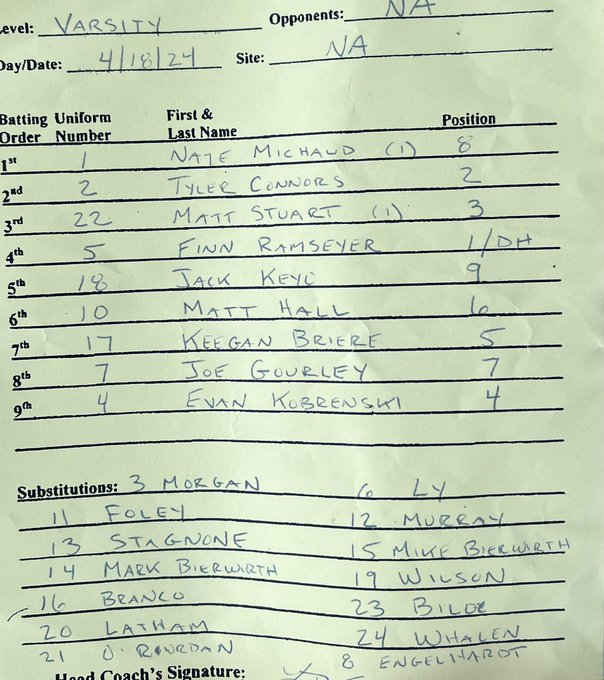 Level: VARSITY Opponents: NA
Day/Date: 4/18/24 Site: NA
Batting Order Uniform Number First & Last Name Position
1st 1 NATE MICHAUD (1) 8
2nd 2 TYLER CONNORS 2
3rd 22 MATT STUART (1) 3
4th 5 FINN RAMSEYER 1/DH
5th 18 JACK KEYC 9
6th 10 MATT HALL 6
7th 17 KEEGAN BRIERE 5
8th 7 JOE GOURLEY 7
9th 4 EVAN KOBRENSKI 4
Substitutions: 3 MORGAN 6 LY
11 FOLEY 12 MURRAY
13 STAGNONE 15 MIKE BIERWIRTH
14 MARK BIERWIRTH 19 WILSON
16 BRANCO 23 BILDE
20 LATHAM 24 WHALEN
21 O'RIORDAN 8 ENGELHARDT
Head Coach's Signature: